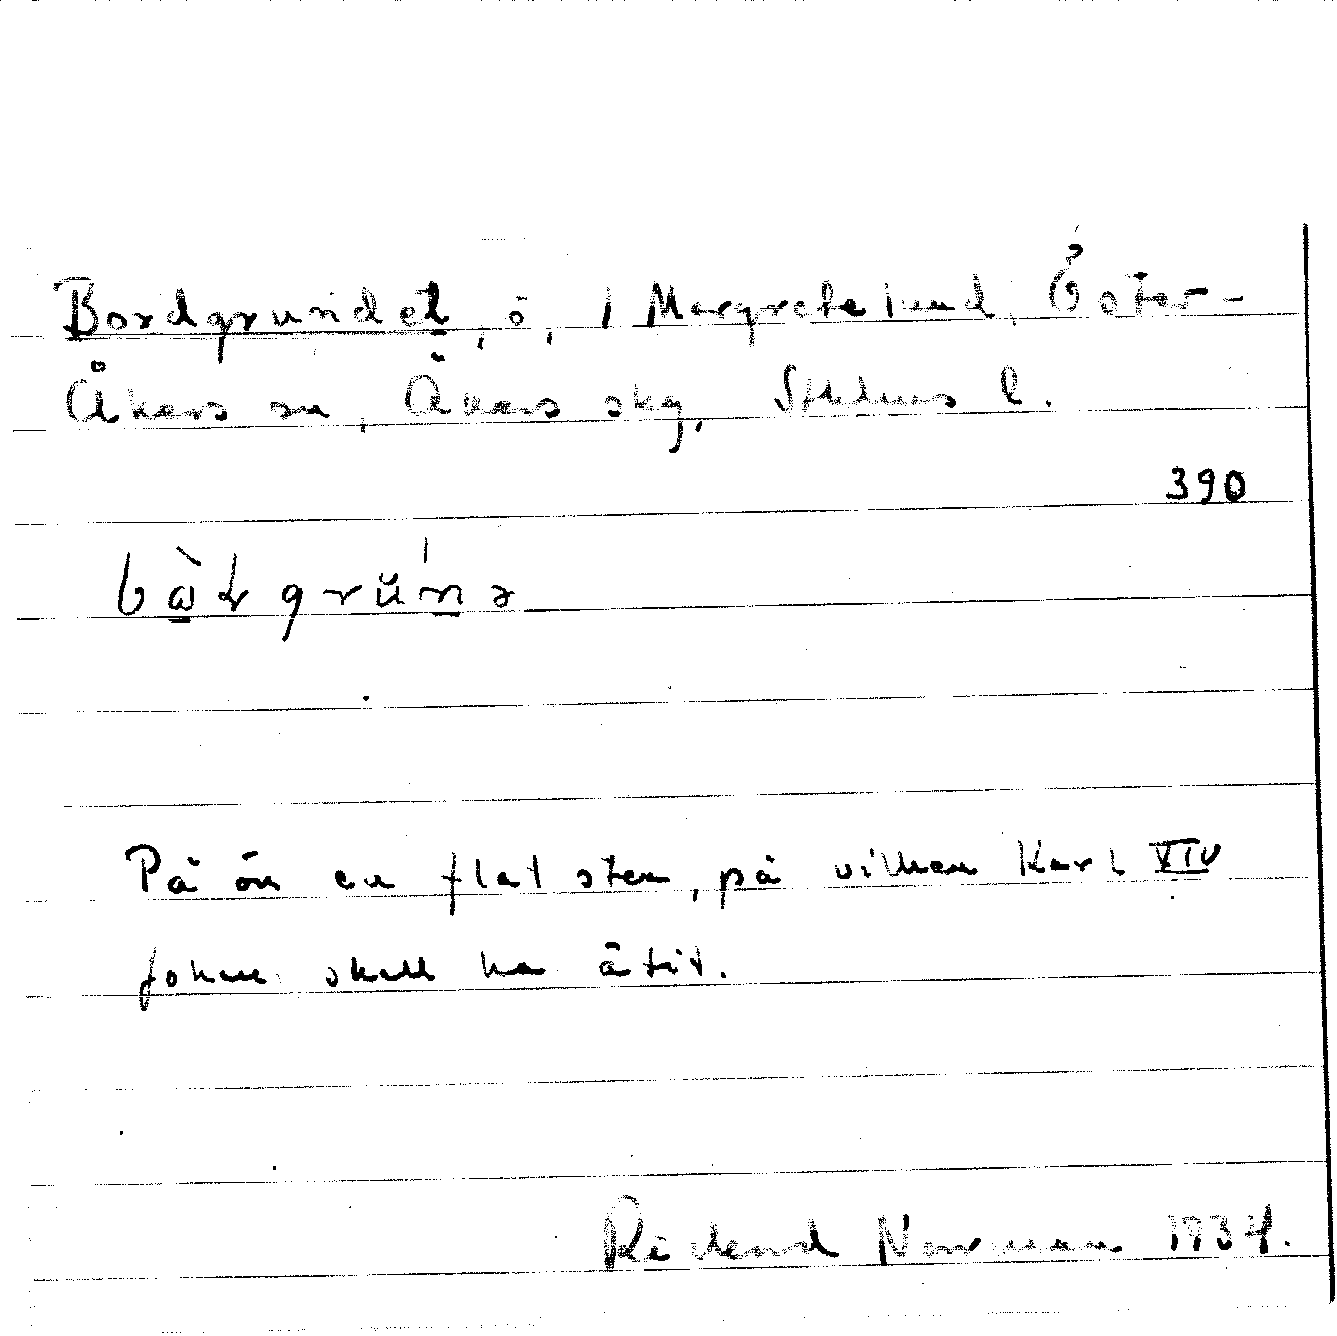 Bordgrundet, ö, i Margretelund, Öster-
Åkers sn, Åkers skg, Sthlms l.
390
På ön en flat sten, på vilken Karl XIV
Johan skall ha ätit.
Richard Norrman 1934.